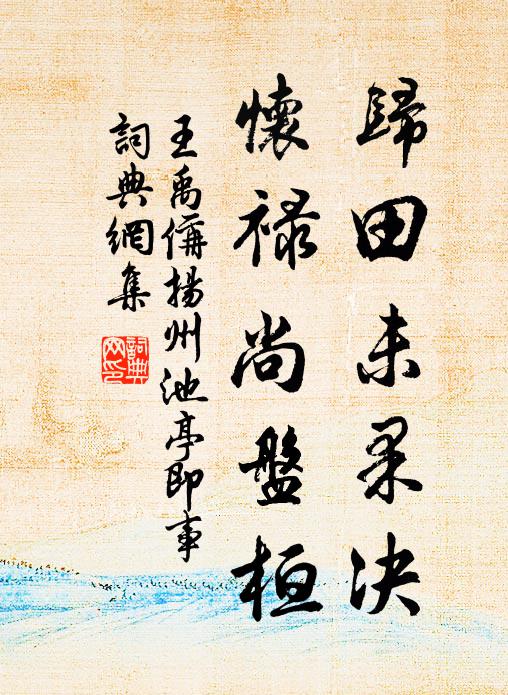 歸田未果決
懷祿尚盤桓
王禹偁揚州池亭即事
詞典網集
詞典網印